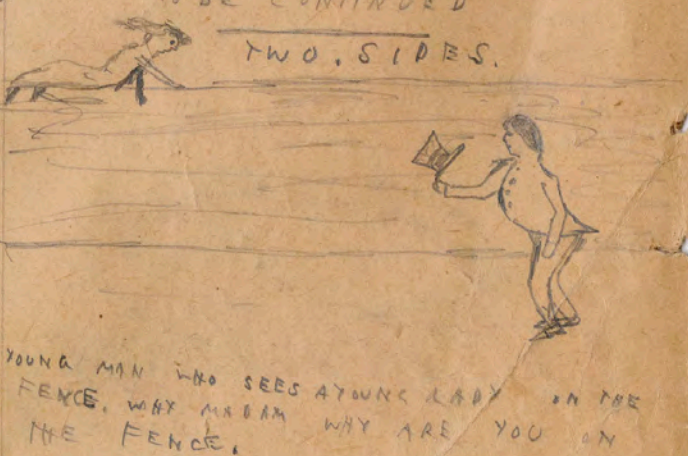 BE CONTINUED
TWO. SIDES.
YOUNG MAN WHO SEES A YOUNG LADY ON THE
FENCE. WHY MADAM WHY ARE YOU ON
THE FENCE.